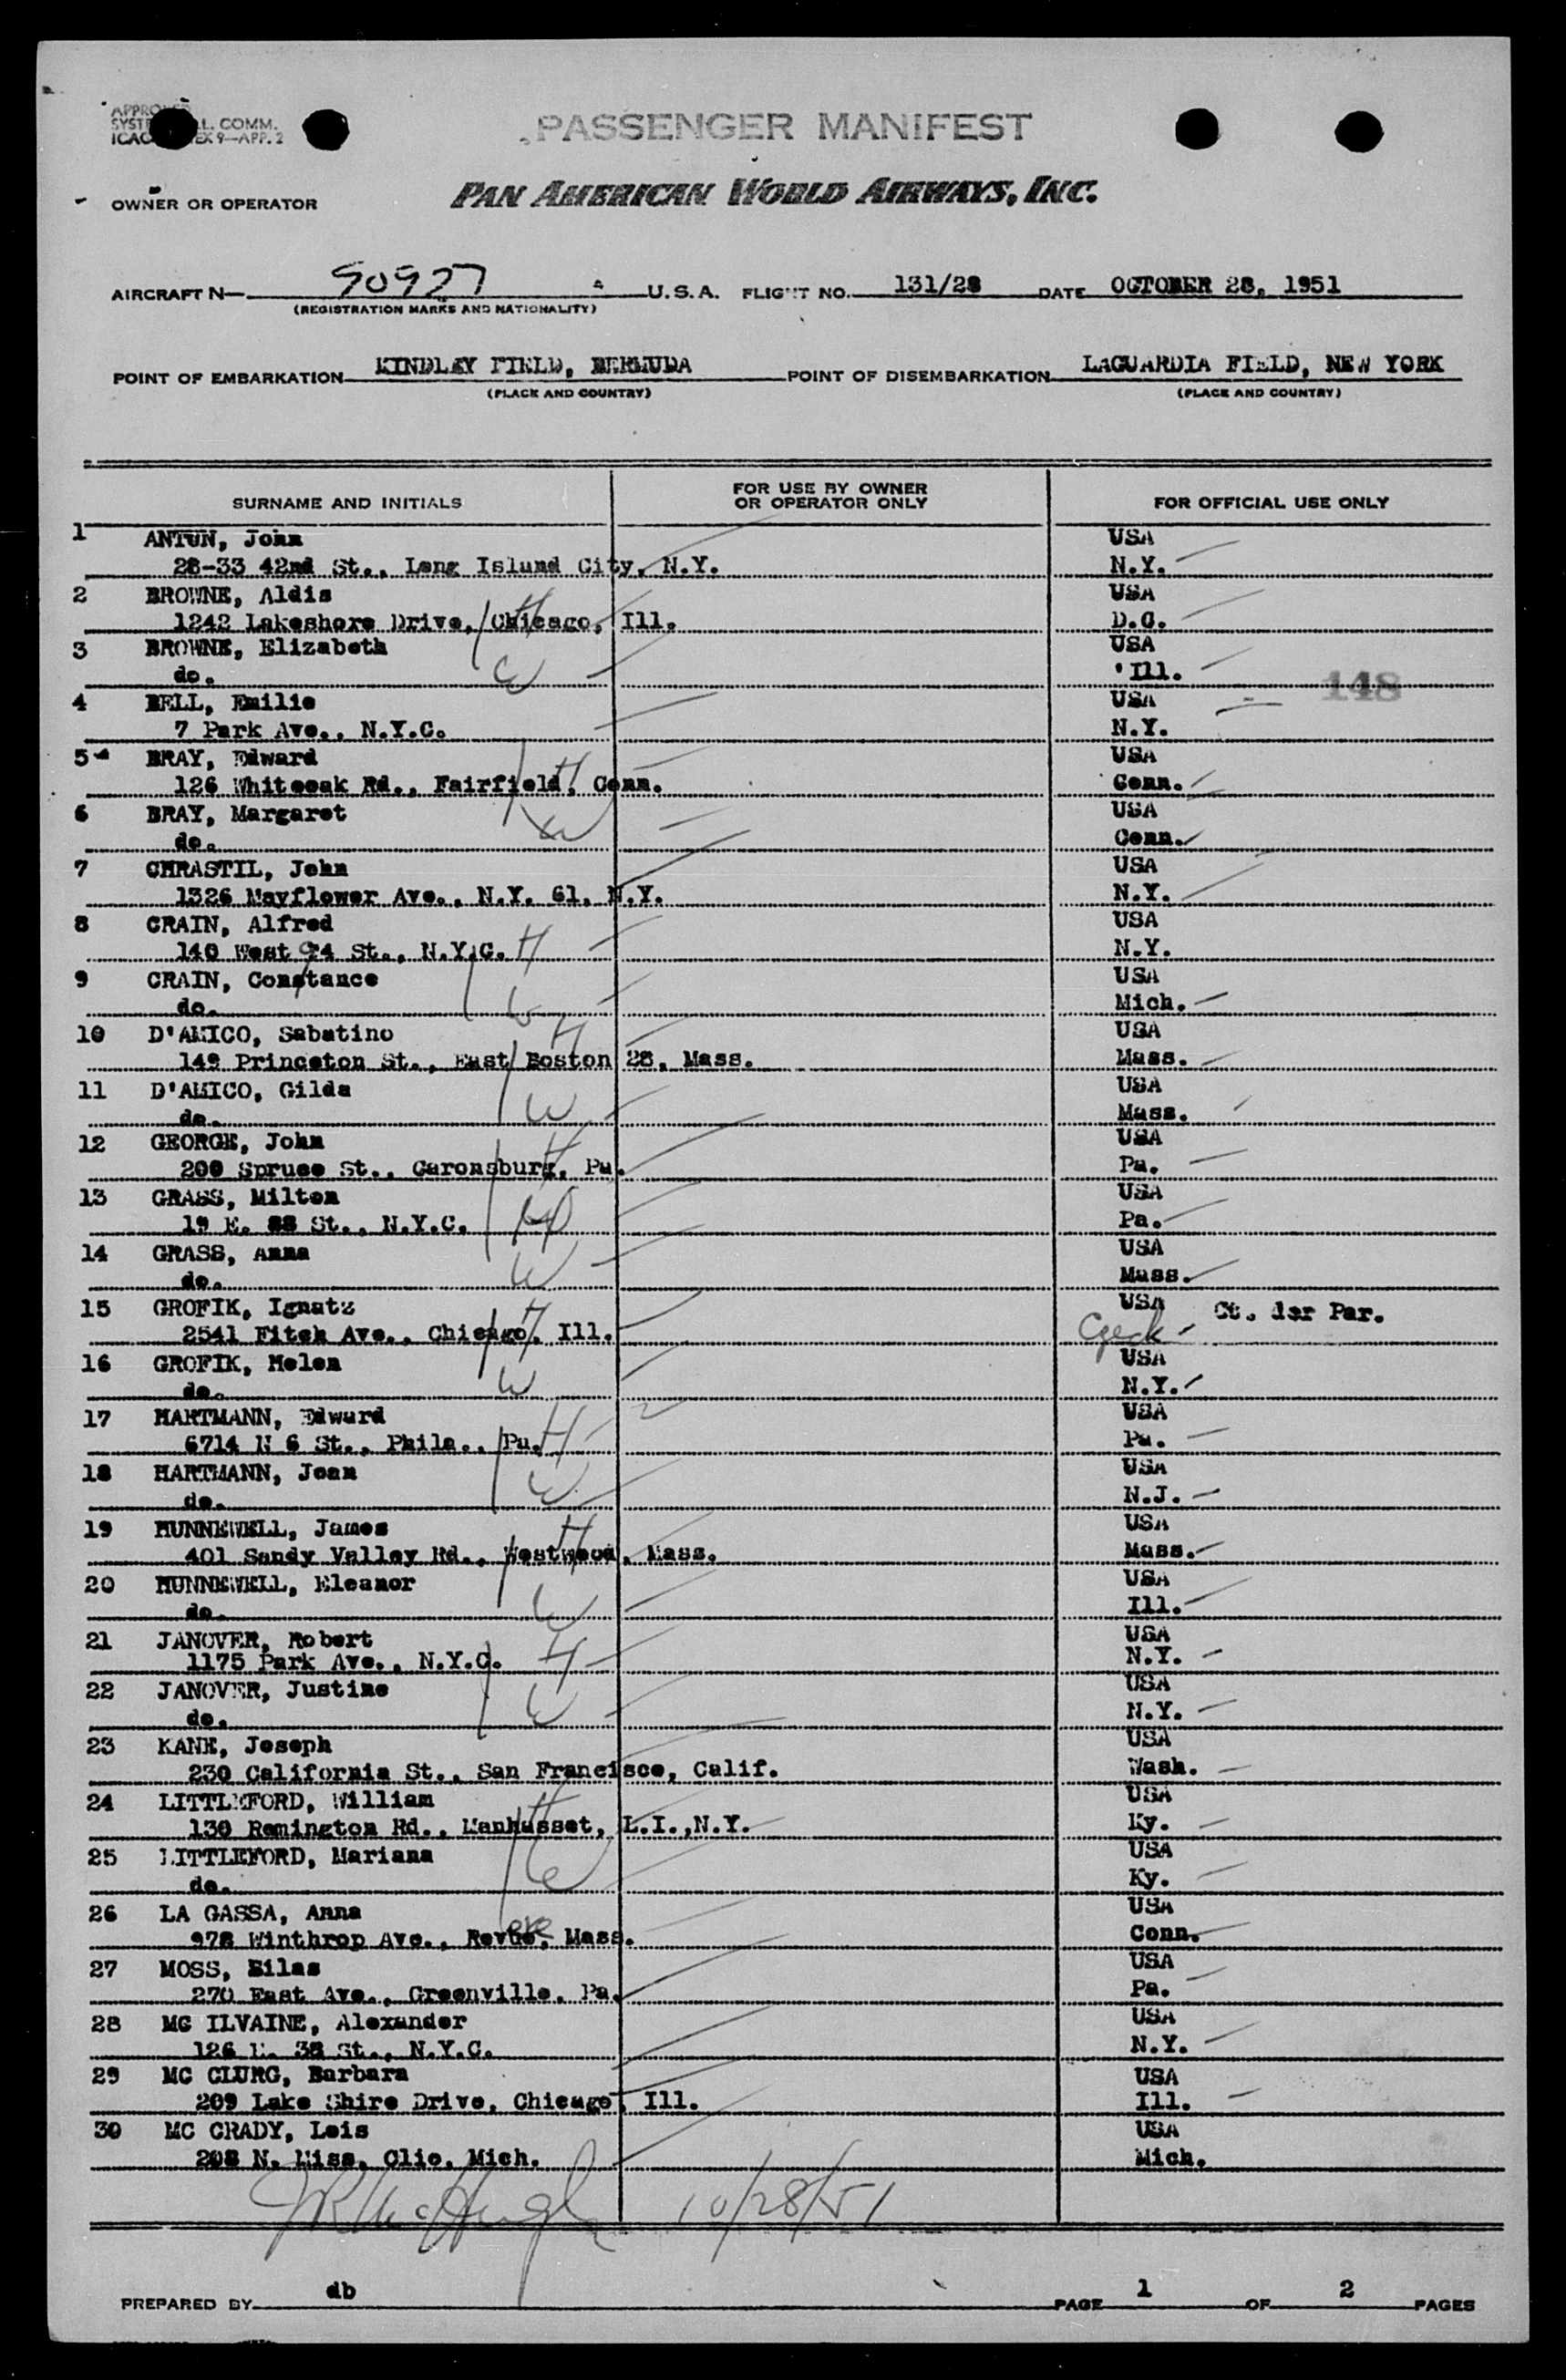 PASSENGER MANIFEST
L. COMM.
9—APP. 2
OWNER OR OPERATOR PAN AMERICAN WORLD AIRWAYS, INC.
AIRCRAFT N— 90927 U.S.A. FLIGHT NO. 131/28 DATE OCTOBER 28, 1951
(REGISTRATION MARKS AND NATIONALITY)
POINT OF EMBARKATION KINDLEY FIELD, BERMUDA POINT OF DISEMBARKATION LAGUARDIA FIELD, NEW YORK
(PLACE AND COUNTRY) (PLACE AND COUNTRY)
SURNAME AND INITIALS FOR USE BY OWNER OR OPERATOR ONLY FOR OFFICIAL USE ONLY
1 ANTUN, John USA
28-33 42nd St., Long Island City, N.Y. N.Y.
2 BROWNE, Aldis USA
1242 Lakeshore Drive, Chicago, Ill. H D.C.
3 BROWNE, Elizabeth USA
do. W Ill.
148
4 BELL, Emilie USA
7 Park Ave., N.Y.C. N.Y.
5 BRAY, Edward USA
126 Whiteoak Rd., Fairfield, Conn. H Conn.
6 BRAY, Margaret USA
do. W Conn.
7 CHRASTIL, John USA
1326 Mayflower Ave., N.Y. 61, N.Y. N.Y.
8 CRAIN, Alfred USA
140 West 94 St., N.Y.C. H N.Y.
9 CRAIN, Constance USA
do. W Mich.
10 D'AMICO, Sabatino H USA
149 Princeton St., East Boston 28, Mass. Mass.
11 D'AMICO, Gilda USA
do. W Mass.
12 GEORGE, John H USA
200 Spruce St., Caronsburg, Pa. Pa.
13 GRASS, Milton USA
19 E. 88 St., N.Y.C. H Pa.
14 GRASS, Anna USA
do. W Mass.
15 GROFIK, Ignatz H USA Ct. der Par.
2541 Fitch Ave., Chicago, Ill. Czech
16 GROFIK, Helen USA
do. W N.Y.
17 HARTMANN, Edward USA
6714 N 6 St., Phila., Pa. H Pa.
18 HARTMANN, Jean USA
do. W N.J.
19 HUNNEWELL, James H USA
401 Sandy Valley Rd., Westwood, Mass. Mass.
20 HUNNEWELL, Eleanor USA
do. W Ill.
21 JANOVER, Robert USA
1175 Park Ave., N.Y.C. H N.Y.
22 JANOVER, Justine USA
do. W N.Y.
23 KANE, Joseph USA
230 California St., San Francisco, Calif. Wash.
24 LITTLEFORD, William H USA
130 Remington Rd., Manhasset, L.I.,N.Y. Ky.
25 LITTLEFORD, Mariana USA
do. W Ky.
26 LA GASSA, Anna USA
978 Winthrop Ave., Revere, Mass. Conn.
27 MOSS, Silas USA
270 East Ave., Greenville, Pa. Pa.
28 MC ILVAINE, Alexander USA
126 E. 38 St., N.Y.C. N.Y.
29 MC CLURG, Barbara USA
209 Lake Shire Drive, Chicago, Ill. Ill.
30 MC CRADY, Lois USA
208 N. Miss, Clio, Mich. Mich.
10/28/51
PREPARED BY db PAGE 1 OF 2 PAGES